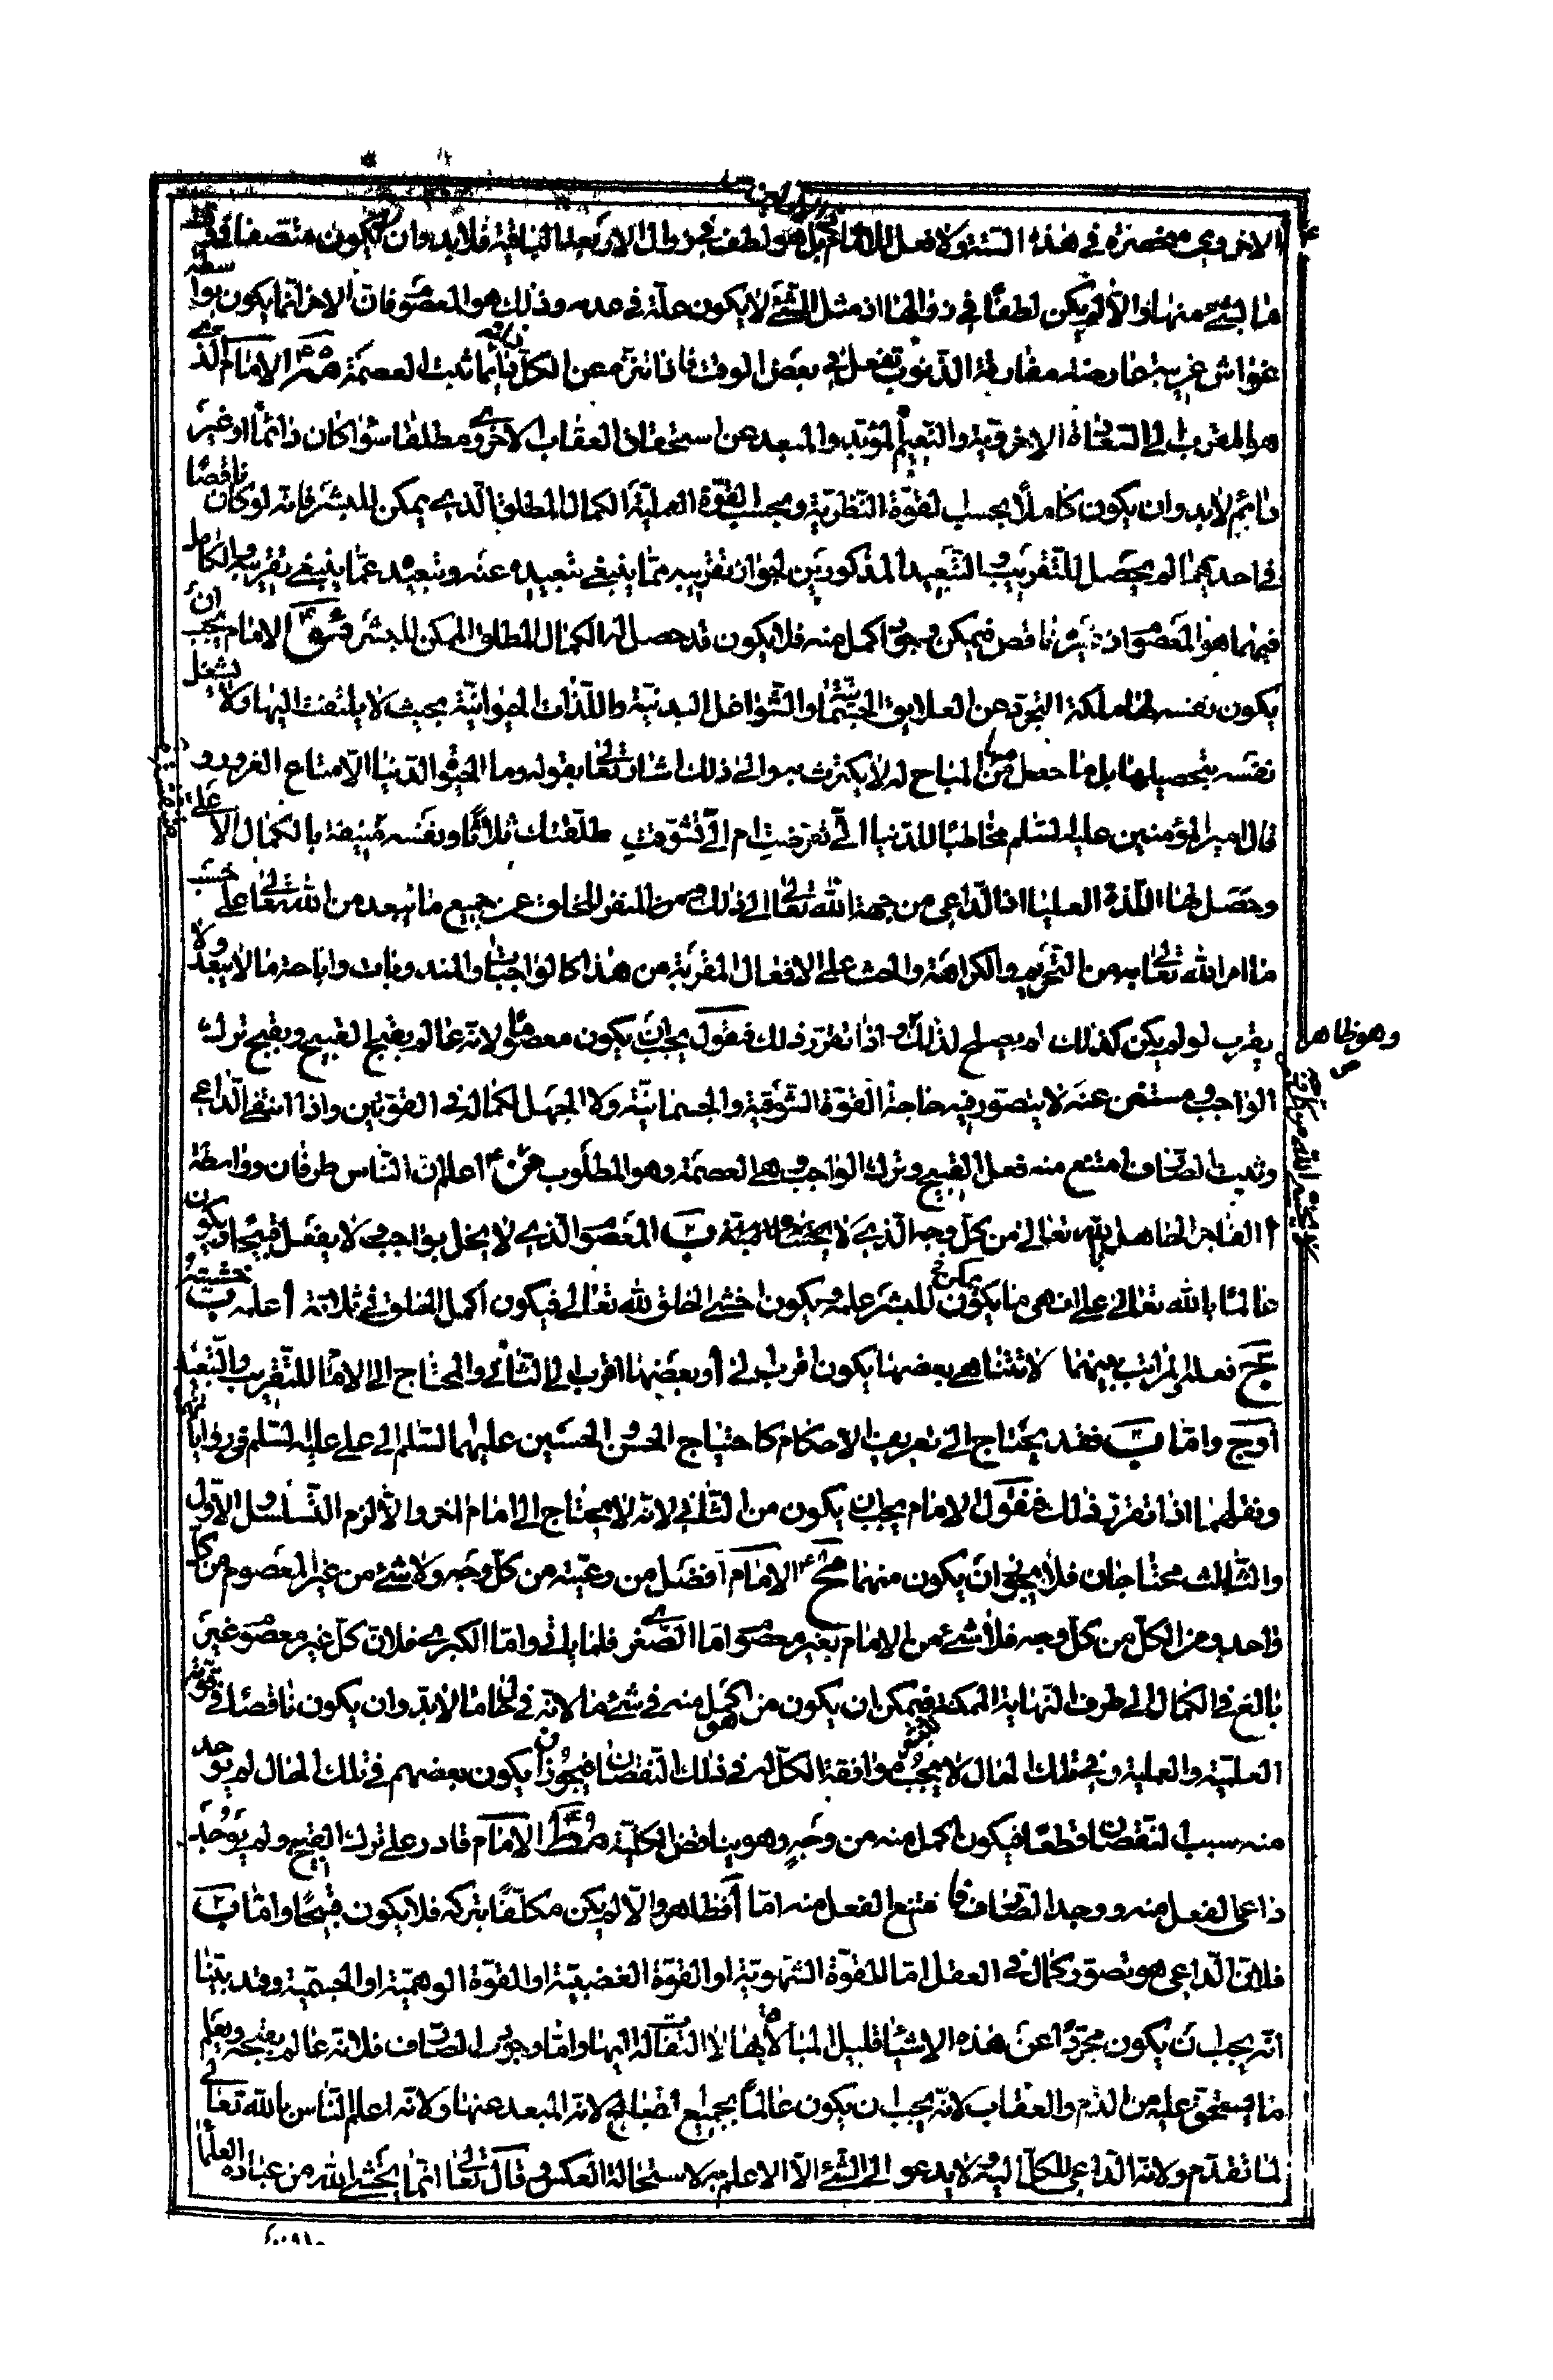 الاخروي منحصرة في هذه الستة ولا فعل للامام بل هو لطف في ابطال الاربعة الباقية فلا بد وان يكون متصفا
ما بشئ منها والا لم يكن لطفا في زوالها اذ مثل الشئ لا يكون علة في عدمه وذلك هو المعصوم فان الاخر انما يكون بواسطة
غواش غريبة عارضة مقارنة الذنوب تفعل في بعض الوقت فاذا تنزه عن الكل دائما ثبت العصمة الامام الذي
هو المقرب الى السعادة الاخروية والنعيم المؤبد والمبعد عن استحقاق العقاب الاخروي مطلقا سواء كان دائما او غير
دائم لا بد وان يكون كاملا بحسب القوة النظرية وبحسب القوة العملية الكمال المطلق الذي يمكن للبشر فانه لو كان ناقصا
في احديهما لم يحصل للتقريب والتبعيد المذكورين لجواز تقريبه مما ينبغي تبعيده عنه وتبعيده عما ينبغي تقريبه والكامل
فيهما هو المعصوم اذ غيره ناقص فيمكن اكمل منه فلا يكون قد حصل له الكمال المطلق الممكن للبشر الامام يجب ان
يكون نفسه لها ملكة التجرد عن العلايق الجسمانية والشواغل البدنية واللذات الحيوانية بحيث لا يلتفت اليها ولا يشغل
نفسه بتحصيلها بل ما حصل من المباح له لا يكترث به والى ذلك اشار تعالى بقوله وما الحيوة الدنيا الا متاع الغرور و
قال امير المؤمنين عليه السلم مخاطبا للدنيا الي تعرضت ام الي تشوقت طلقتك ثلاثا ونفسه منيفة بالكمال الاعلى
وحصل لها اللذة العليا اذ الداعي من جهة الله تعالى الى ذلك المنفر للخلق عن جميع ما يبعد من الله تعالى على حسب
ما امر الله تعالى به من التحريم والكراهة والحث على الافعال المقربة من هذا كالواجبات والمندوبات واباحة ما لا يبعد ولا
يقرب لو لم يكن كذلك لم يصلح لذلك اذا تقرر ذلك فنقول يجب ان يكون معصوما لانه عالم بقبح القبيح وبقبح ترك
وهو ظاهر
الواجب ومستغن عنه لا يتصور فيه حاجة القوة الشوقية والجسمانية ولا الجهل لكماله في القوتين واذا انتفى الداعي
وثبت الصارف امتنع منه فعل القبيح وترك الواجب وهي العصمة وهو المطلوب اعلم ان الناس طرفان وواسطة
أ الفاجر الجاهل بالله تعالى من كل وجه الذي لا يخشاه البتة ب المعصوم الذي لا يخل بواجب ولا يفعل قبيحا ويكون
عالما بالله تعالى على انهى ما يمكن للبشر علمه ويكون اخشى الخلق لله تعالى فيكون اكمل الخلق في ثلاثة أ علمه ب خشيته
ج فعله المراتب بينهما لا تتناهى بعضها يكون اقرب الى أ وبعضها اقرب الى الثاني والمحتاج الى الامام للتقريب والتبعيد
أ وج واما ب فقد يحتاج الى تعريف الاحكام كاحتياج الحسن والحسين عليهما السلم الى علي عليه السلم في رواياتهما
ونقلهما اذا تقرر ذلك فنقول الامام يجب ان يكون من الثاني لانه لا يحتاج الى امام اخر والا لزم التسلسل والاول
والثالث محتاجان فلا يجوز ان يكون منهما الامام افضل من رعيته من كل وجه ولا شئ من غير المعصوم من كل
واحد ومن الكل من كل وجه فلا شئ من الامام بغير معصوم اما الصغرى فلما ياتي واما الكبرى فلان كل غير معصوم غير
بالغ في الكمال الى طرف النهاية الممكنة فيمكن ان يكون من هو اكمل منه في شئ ما لانه في حال ما لا بد وان يكون ناقصا في قوته
العلمية والعملية وفي تلك الحال لا يجب موافقة الكل له في ذلك النقصان فيجوز ان يكون بعضهم في تلك الحال لم يوجد
منه سبب النقصان قطعا فيكون اكمل منه من وجه وهو يناقض الكلية الامام قادر على ترك القبيح ولم يوجد
داعي الفعل منه ووجد الصارف فامتنع الفعل منه اما أ فظاهر والا لم يكن مكلفا بتركه فلا يكون قبيحا واما ب
فلان الداعي هو تصور كمال في العقل اما للقوة الشهوية او القوة الغضبية او القوة الوهمية او الجسمية وقد بينا
انه يجب ان يكون مجردا عن هذه الاشياء قليل المبالاة بها لا التفات له اليها واما وجود الصارف فلانه عالم بقبحه ويعلم
ما يستحق عليه من الذم والعقاب لانه يجب ان يكون عالما بجميع القبايح لانه المبعد عنها ولانه اعلم الناس بالله تعالى
لما تقدم ولانه الداعي للكل اليه ولا يدعو الى الشئ الا الاعلم به لاستحالة العكس وقال تعالى انما يخشى الله من عباده العلماء